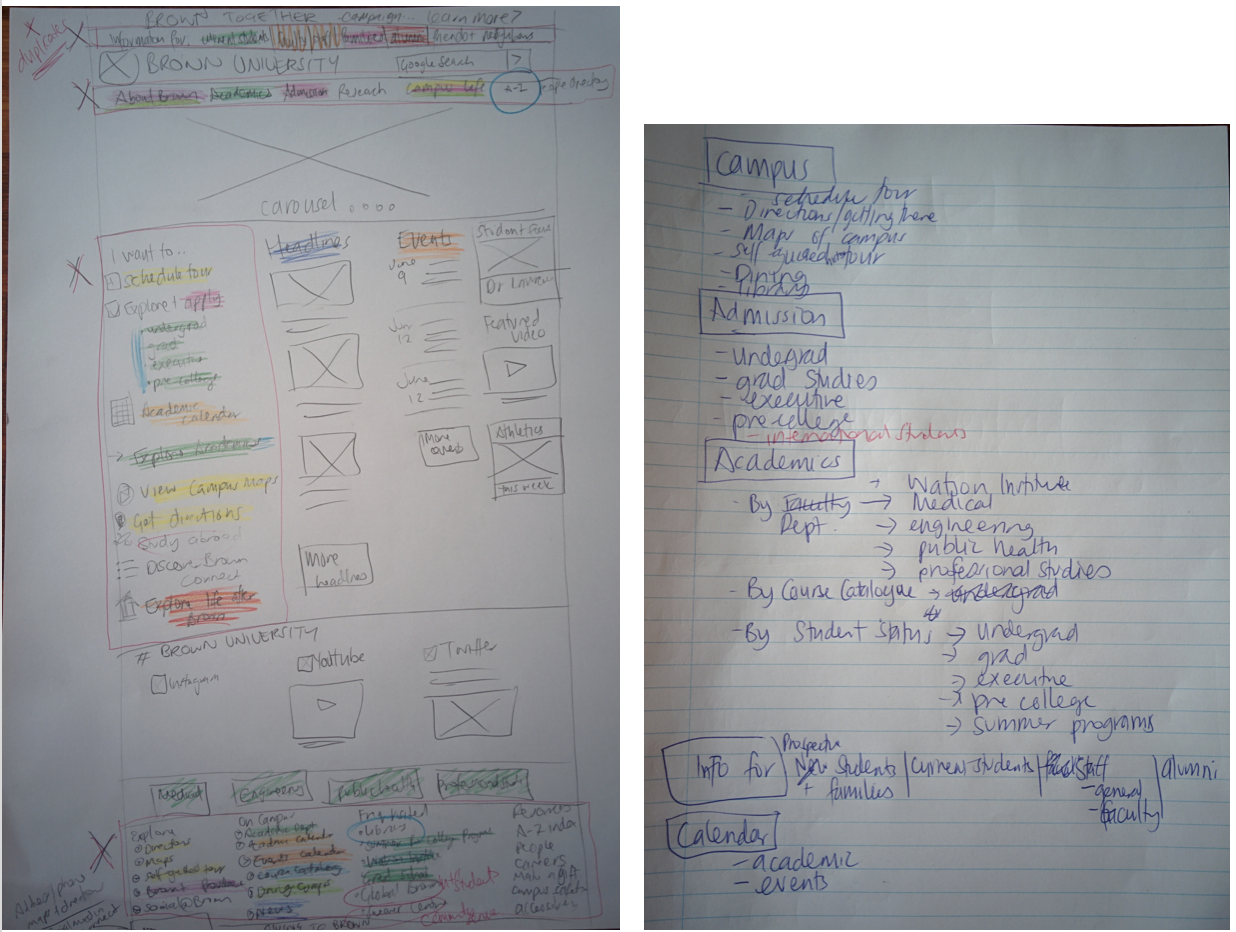 BROWN TOGETHER campaign... learn more?
duplicates
Information for: current students Faculty alumni
BROWN UNIVERSITY Google Search >
About Brown Academics Admission Research Campus Life A-Z People Directory
carousel
I want to..
schedule tour
Explore + apply
undergrad
grad
executive
pre-college
Academic
calendar
Explore Academics
View Campus Maps
Get directions
Study abroad
Discover Brown
Connect
Explore life after
Brown
Headlines
More
headlines
Events
June
9
Jun
12
June
12
More
events
Student
Featured
Video
Athletics
this week
# BROWN UNIVERSITY
Instagram
Youtube
Twitter
Medical Engineering public health Professional
Explore
Directions
Maps
Self guided tour
Brown
Social@Brown
On Campus
Academic Dept
Academic calendar
Events calendar
Course Catalog
Dining
Libraries
Summer
Global Brown
Resources
A-Z index
People
Careers
Make a gift
Campus
Campus
- schedule tour
- Directions/getting there
- Maps of campus
- Self guided tour
- Dining
- Library
Admission
- undegrad
- grad Studies
- executive
- pre college
- international students
Academics
- By Faculty Dept.
→ Watson Institute
→ Medical
→ engineering
→ public health
→ professional studies
- By Course Catalogue → Undergrad
- By Student Status → undergrad
→ grad
→ executive
→ pre college
→ summer programs
Info for
Prospective
New Students
+ families
current students
Staff
- general
- faculty
alumni
Calendar
- academic
- events